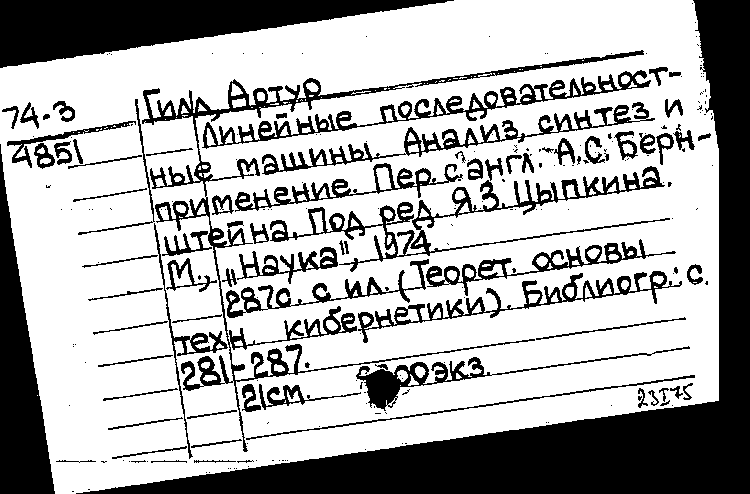 74-3 Гилл, Артур
4851 Линейные последовательност-
ные машины. Анализ, синтез и
применение. Пер. с англ. А.С. Берн-
штейна. Под ред. Я.З. Цыпкина.
М., „Наука", 1974.
287с. с ил. (Теорет. основы
техн. кибернетики). Библиогр.: с.
281-287.
21см. 00экз.
23I75